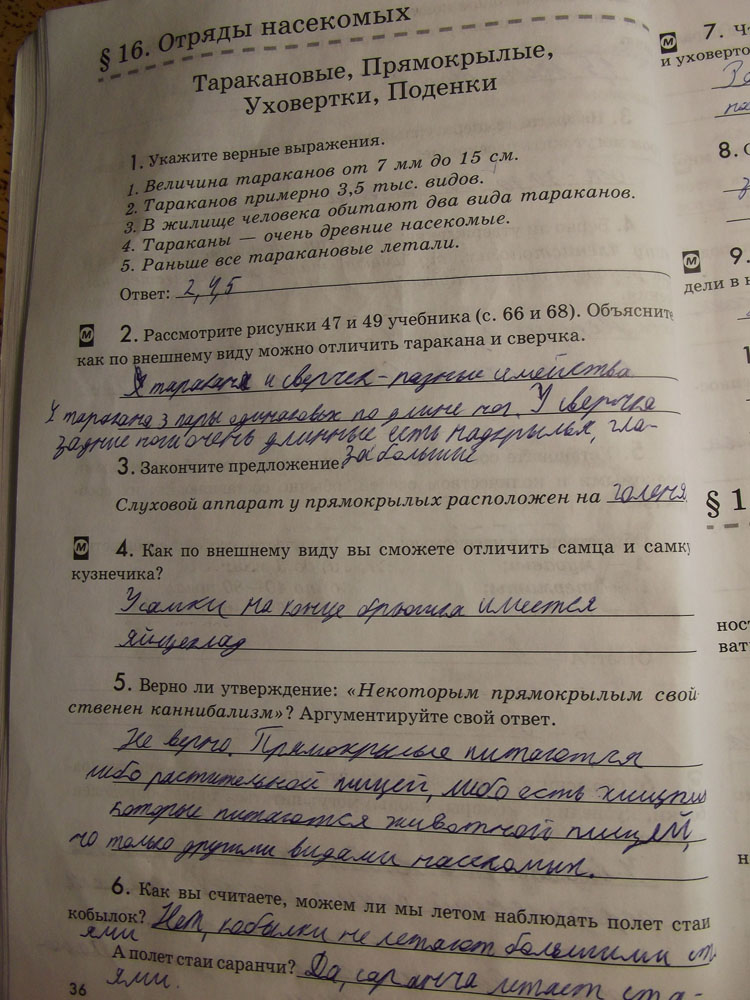 § 16. Отряды насекомых
Таракановые, Прямокрылые,
Уховертки, Поденки
1. Укажите верные выражения.
1. Величина тараканов от 7 мм до 15 см.
2. Тараканов примерно 3,5 тыс. видов.
3. В жилище человека обитают два вида тараканов.
4. Тараканы — очень древние насекомые.
5. Раньше все таракановые летали.
Ответ: 2,4,5
М 2. Рассмотрите рисунки 47 и 49 учебника (с. 66 и 68). Объясните
как по внешнему виду можно отличить таракана и сверчка.
таракан и сверчек - разные семейства
У таракана 3 пары одинаковых по длине ног. У сверчка
задние ноги очень длинные есть надкрылья, гла-
за большие
3. Закончите предложение
Слуховой аппарат у прямокрылых расположен на голеня
М 4. Как по внешнему виду вы сможете отличить самца и самку
кузнечика?
У самки на конце брюшка имеется
яйцеклад
5. Верно ли утверждение: «Некоторым прямокрылым свой
ственен каннибализм»? Аргументируйте свой ответ.
Не верно. Прямокрылые питаются
либо растительной пищей, либо есть хищники
которые питаются животной пищей,
но только другими видами насекомых.
6. Как вы считаете, можем ли мы летом наблюдать полет стаи
кобылок? Нет, кобылки не летают большими ст
аями
А полет стаи саранчи? Да, саранча летает ста-
ями.
36
М 7. Ч
и уховерто
8.
М 9.
дели в н
§ 1
ност
ват